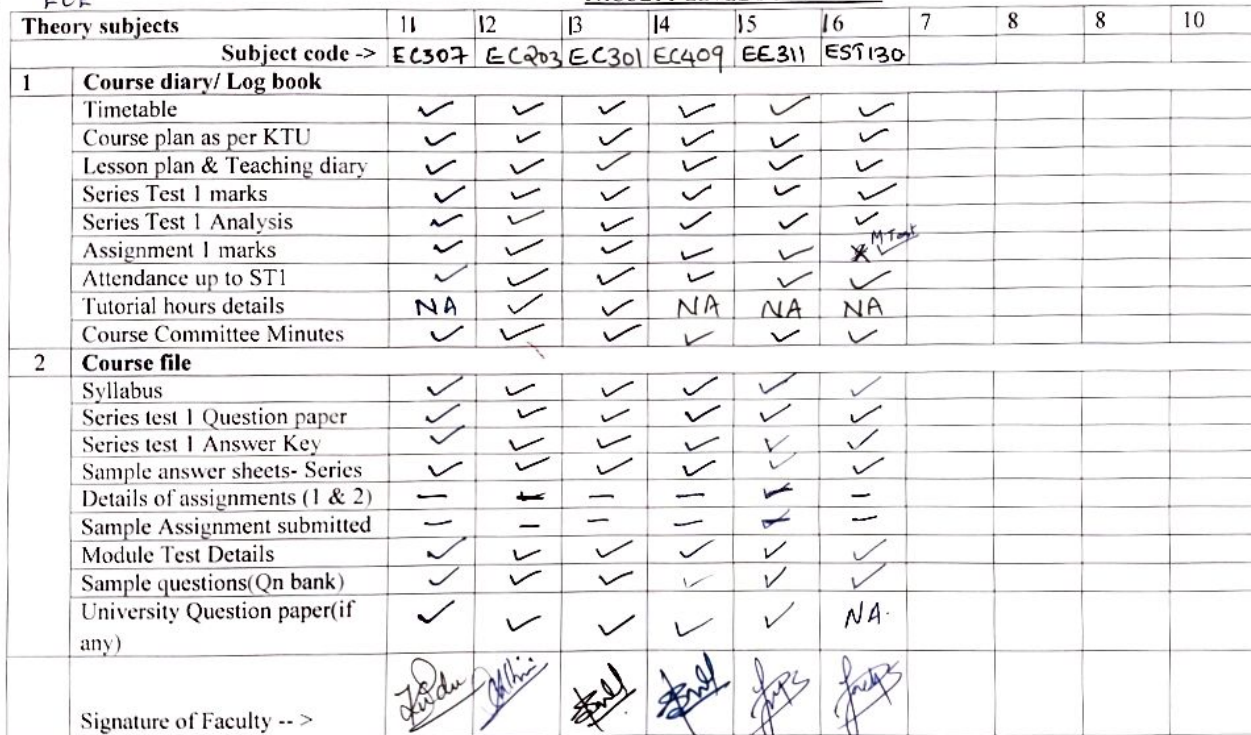 ECE
Theory subjects 11 12 13 14 15 16 7 8 8 10
Subject code -> EC307 EC203 EC301 EC409 EE311 EST130
1 Course diary/ Log book
Timetable ✓ ✓ ✓ ✓ ✓ ✓
Course plan as per KTU ✓ ✓ ✓ ✓ ✓ ✓
Lesson plan & Teaching diary ✓ ✓ ✓ ✓ ✓ ✓
Series Test 1 marks ✓ ✓ ✓ ✓ ✓ ✓
Series Test 1 Analysis ✓ ✓ ✓ ✓ ✓ ✓
Assignment 1 marks ✓ ✓ ✓ ✓ ✓ ✓ M Test
Attendance up to ST1 ✓ ✓ ✓ ✓ ✓ ✓
Tutorial hours details NA ✓ ✓ NA NA NA
Course Committee Minutes ✓ ✓ ✓ ✓ ✓ ✓
2 Course file
Syllabus ✓ ✓ ✓ ✓ ✓ ✓
Series test 1 Question paper ✓ ✓ ✓ ✓ ✓ ✓
Series test 1 Answer Key ✓ ✓ ✓ ✓ ✓ ✓
Sample answer sheets- Series ✓ ✓ ✓ ✓ ✓ ✓
Details of assignments (1 & 2) — — — — ✓ —
Sample Assignment submitted — — — — ✓ —
Module Test Details ✓ ✓ ✓ ✓ ✓ ✓
Sample questions(Qn bank) ✓ ✓ ✓ ✓ ✓ ✓
University Question paper(if ✓ ✓ ✓ ✓ ✓ NA.
any)
Signature of Faculty -- >